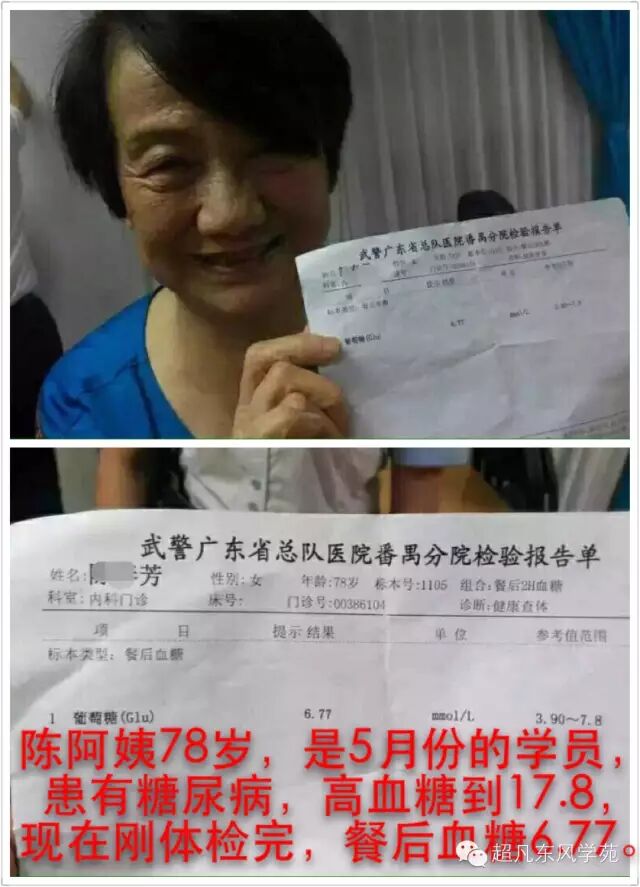 武警广东省总队医院番禺分院检验报告单
性别: 女
葡萄糖(Glu)
6.77
mmol/L
3.90~7.8
武警广东省总队医院番禺分院检验报告单
姓名: 芳 性别: 女 年龄:78岁 标本号:1105 组合:餐后2H血糖
科室: 内科门诊 床号: 门诊号:00386104 诊断:健康查体
项 目 提示 结果 单 位 参考值范围
标本类型: 餐后血糖
1 葡萄糖(Glu) 6.77 mmol/L 3.90~7.8
陈阿姨78岁，是5月份的学员，
患有糖尿病，高血糖到17.8，
现在刚体检完，餐后血糖6.77。
超凡东风学苑